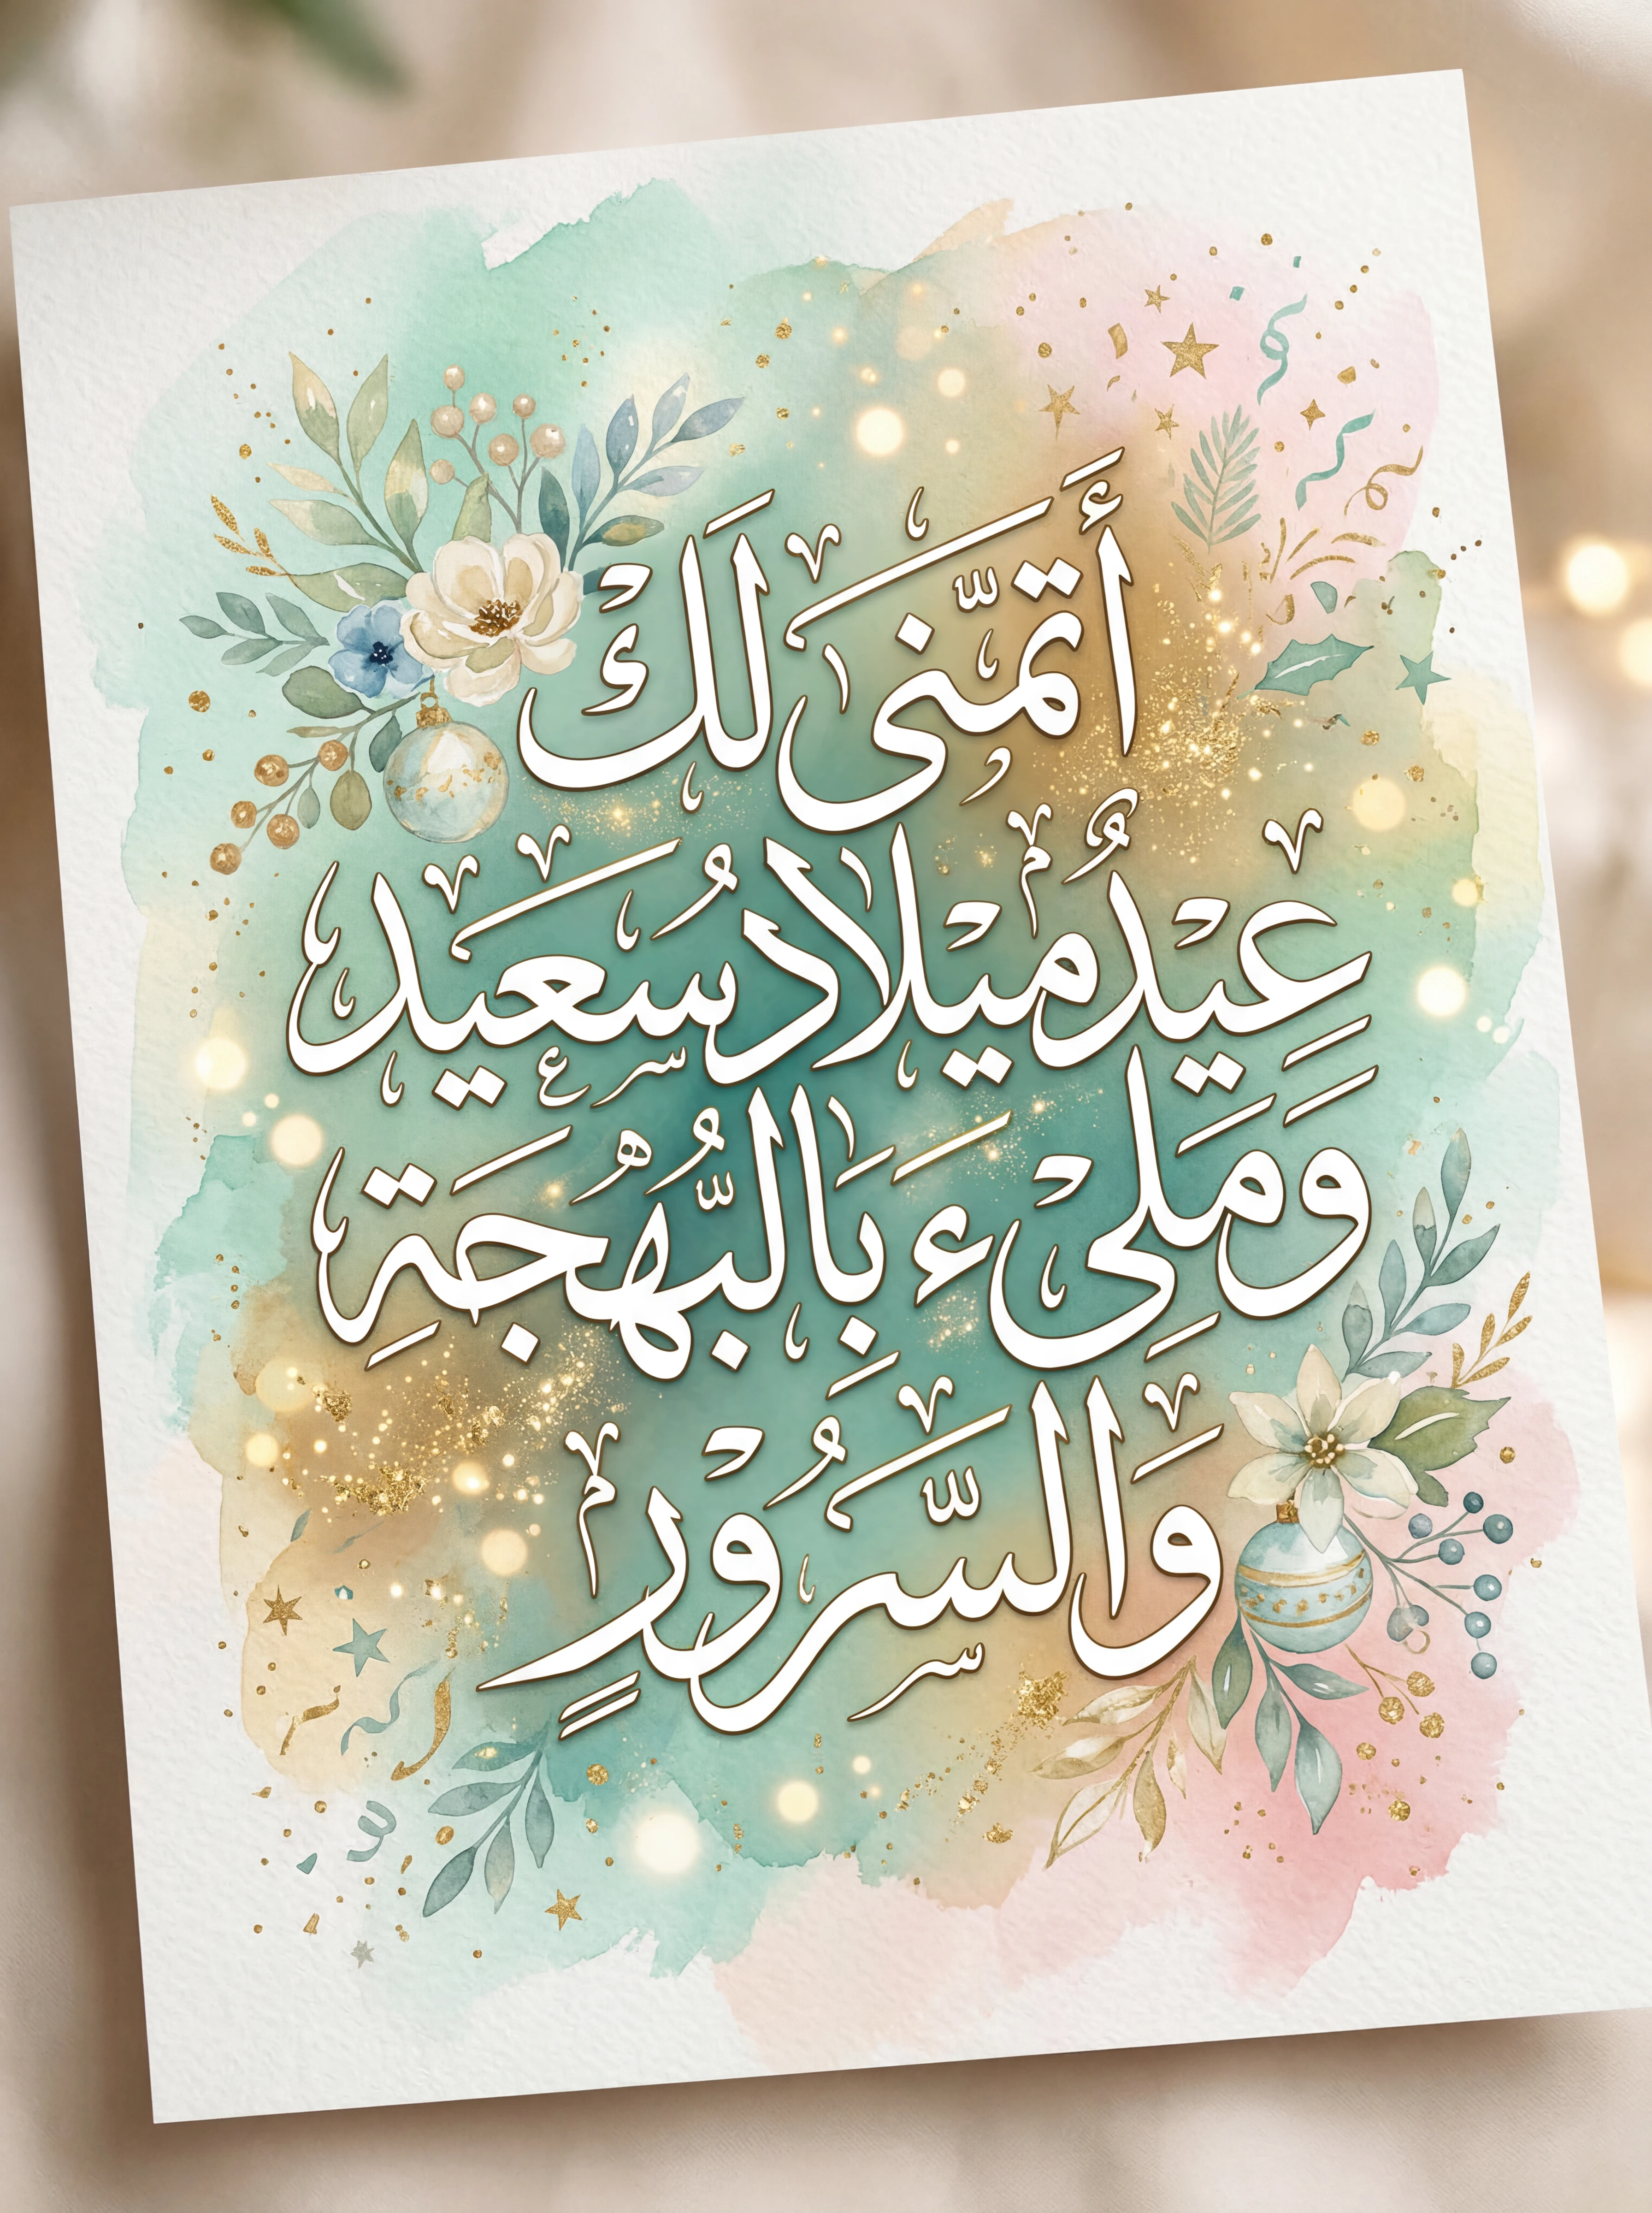 أَتمَّنى لَكْ
عِيْدُ مِيْلاد سُعَيَد
وَمَلِىْءَ بِالبُّهْجَةِ
وَالسَّرُوْرٍ